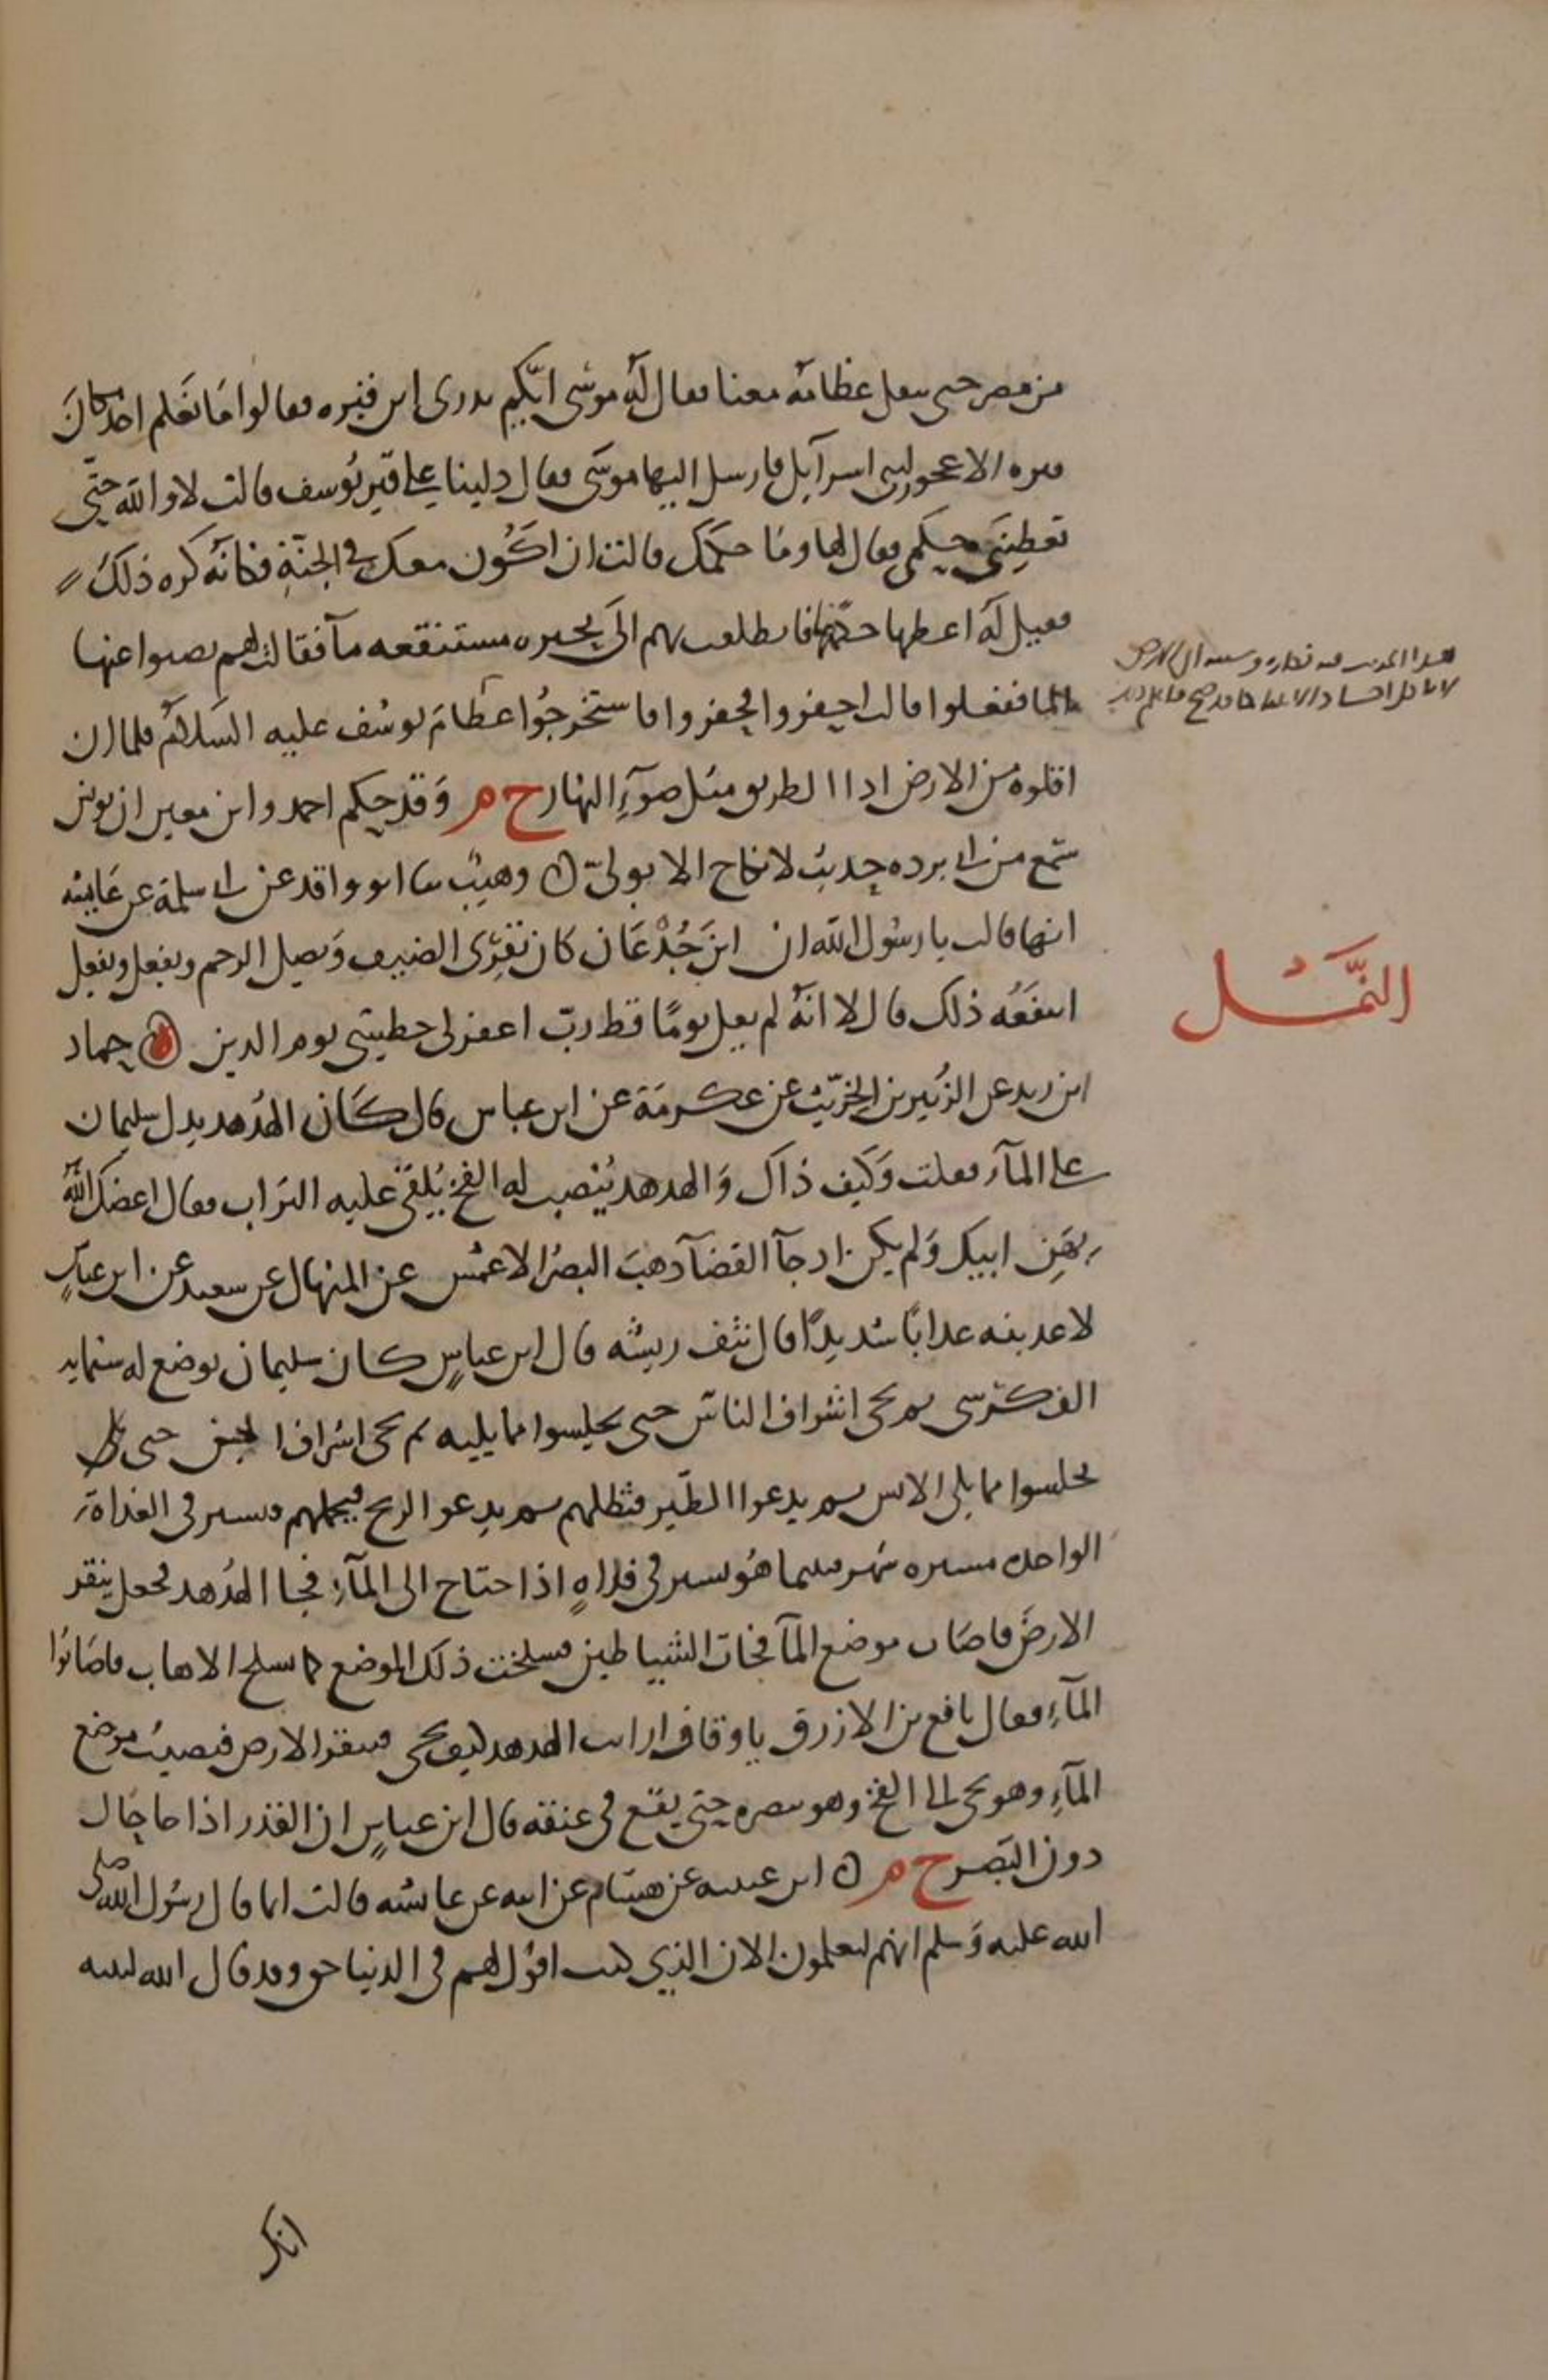 من مصر حتى ننقل عظامه معنا فقال له موسى ايكم يدري اين قبره فقالوا ما نعلم احد مكان
قبره الا عجوز لبنى اسرآيل فارسل اليها موسى فقال دلينا على قبر يوسف قالت لا والله حتّى
تعطينى حكمى فقال لها وما حكمك قالت ان اكون معك فى الجنّةِ فكانّه كره ذلك
فقيل له اعطها حكمها فانطلقت بهم الى بحيره مستنقعه مآ فقالت لهم نضبوا عنها
المآ ففعلوا قالت احفروا فحفروا فاستخرجُوا عظامَ يوسُف عليه السّلام فلما ان
اقلوه من الارض اذا الطريق مثل ضوءِ النهار ح م وَقد حكم احمد وابن معين ان يونس
سمع من ابى برده حديث لا نكاح الا بولىّ ن وهيب ثنا ابو واقد عن ابى سلمة عن عايشه
انها قالت يا رسُول الله ان ابن جُدْعَان كان يَقرى الضيف وَيصل الرحم ويفعل ويفعل
اينفَعُه ذلك قال لا انّه لم يقل يومًا قط ربّ اغفر لى خطيئتى يوم الدين حماد
ابن زيد عن الزُبير بن الخرّيت عن عكرمَة عن ابن عباس قال كَان الهُدهد يدل سليمان
على المآءِ فقلت وَكيف ذاك وَالهدهد يُنصب له الفخ يُلقى عليه التراب فقال اعضك الله
بهَنِ ابيك وَلم يكن اذ جآ القضآ ذهبَ البصَر الاعمش عن المنهال عن سعيد عن ابن عباسٍ
لاعذبنه عذابًا شديدًا قال نتف ريشه قال ابن عباسٍ كان سليمان يوضع له ستمايه
الف كرسى ثم يجى اشراف الناس حتى يجلسوا مما يليه ثم يجى اشراف الجن حتى
يجلسوا مما يلى الانس ثم يدعوا الطّير فتظلهم ثم يدعو الريح فتحملهم فيسير فى الغداة
الواحده مسيره شهر فبينما هُو يسير فى فلاهٍ اذ احتاج الى المآءِ فجا الهُدهد فجعل ينقر
الارضَ فاصَاب موضع المآ فجات الشياطين فسلخت ذلك الموضع كما يسلخ الاهاب فاصَابُوا
المآءِ فقال نافع بن الازرق يا وقاف ارايت الهدهد كيف يجى فينقر الارض فيصيب موضع
المآءِ وهو يجى الى الفخ وهو يبصره حتى يقع فى عنقه قال ابن عباسٍ ان القدر اذا جا حال
دون البَصر ح م ن ابن عيينه عن هشام عن ابيه عن عايشه قالت انما قال رسُول الله صلى
الله عليه وَسلم انهم ليعلمون الان الذي كنت اقول لهم فى الدنيا حق وقد قال الله لنبيه
هذا الحديث فيه نكاره
النّمْل
انك